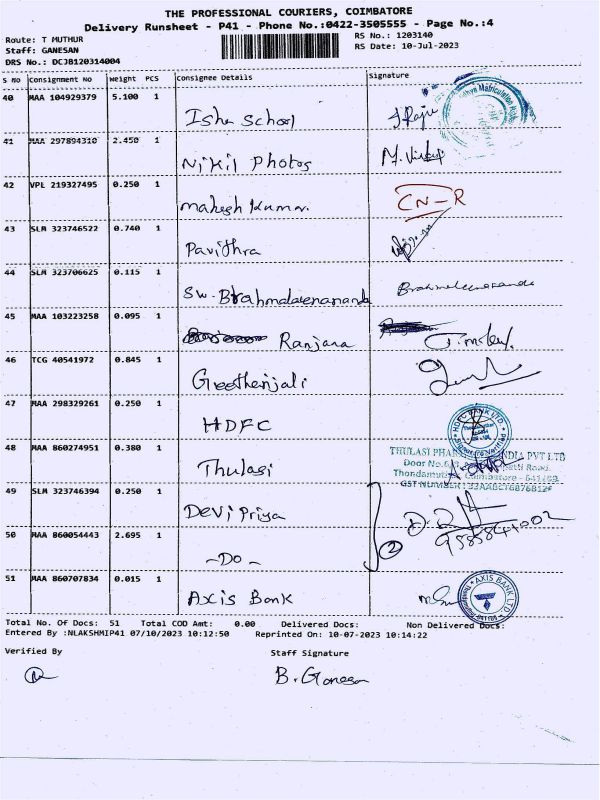 THE PROFESSIONAL COURIERS, COIMBATORE
Delivery Runsheet - P41 - Phone No.:0422-3505555 - Page No.:4
Route: T MUTHUR RS No.: 1203140
Staff: GANESAN RS Date: 10-Jul-2023
DRS No.: DCJB120314004
S No Consignment No Weight PCS Consignee Details Signature
40 MAA 104929379 5.100 1 Isha School
41 MAA 297894310 2.450 1 Nikil Photos
42 VPL 219327495 0.250 1 Mahesh Kumar. CN-R
43 SLM 323746522 0.740 1 Pavithra
44 SLM 323706625 0.115 1
45 MAA 103223258 0.095 1 Ranjana
46 TCG 40541972 0.845 1 Geethanjali
47 MAA 298329261 0.250 1 HDFC HDFC BANK LTD
48 MAA 860274951 0.380 1 Thulasi
THULASI PVT LTD
Door No.
Coimbatore - 641109
GST NUMBER :
49 SLM 323746394 0.250 1 Devi Priya
50 MAA 860054443 2.695 1 -Do- 2
51 MAA 860707834 0.015 1 Axis Bank AXIS BANK LTD
Total No. Of Docs: 51 Total COD Amt: 0.00 Delivered Docs: Non Delivered Docs:
Entered By :NLAKSHMIP41 07/10/2023 10:12:50 Reprinted On: 10-07-2023 10:14:22
Verified By Staff Signature
B. Ganesan